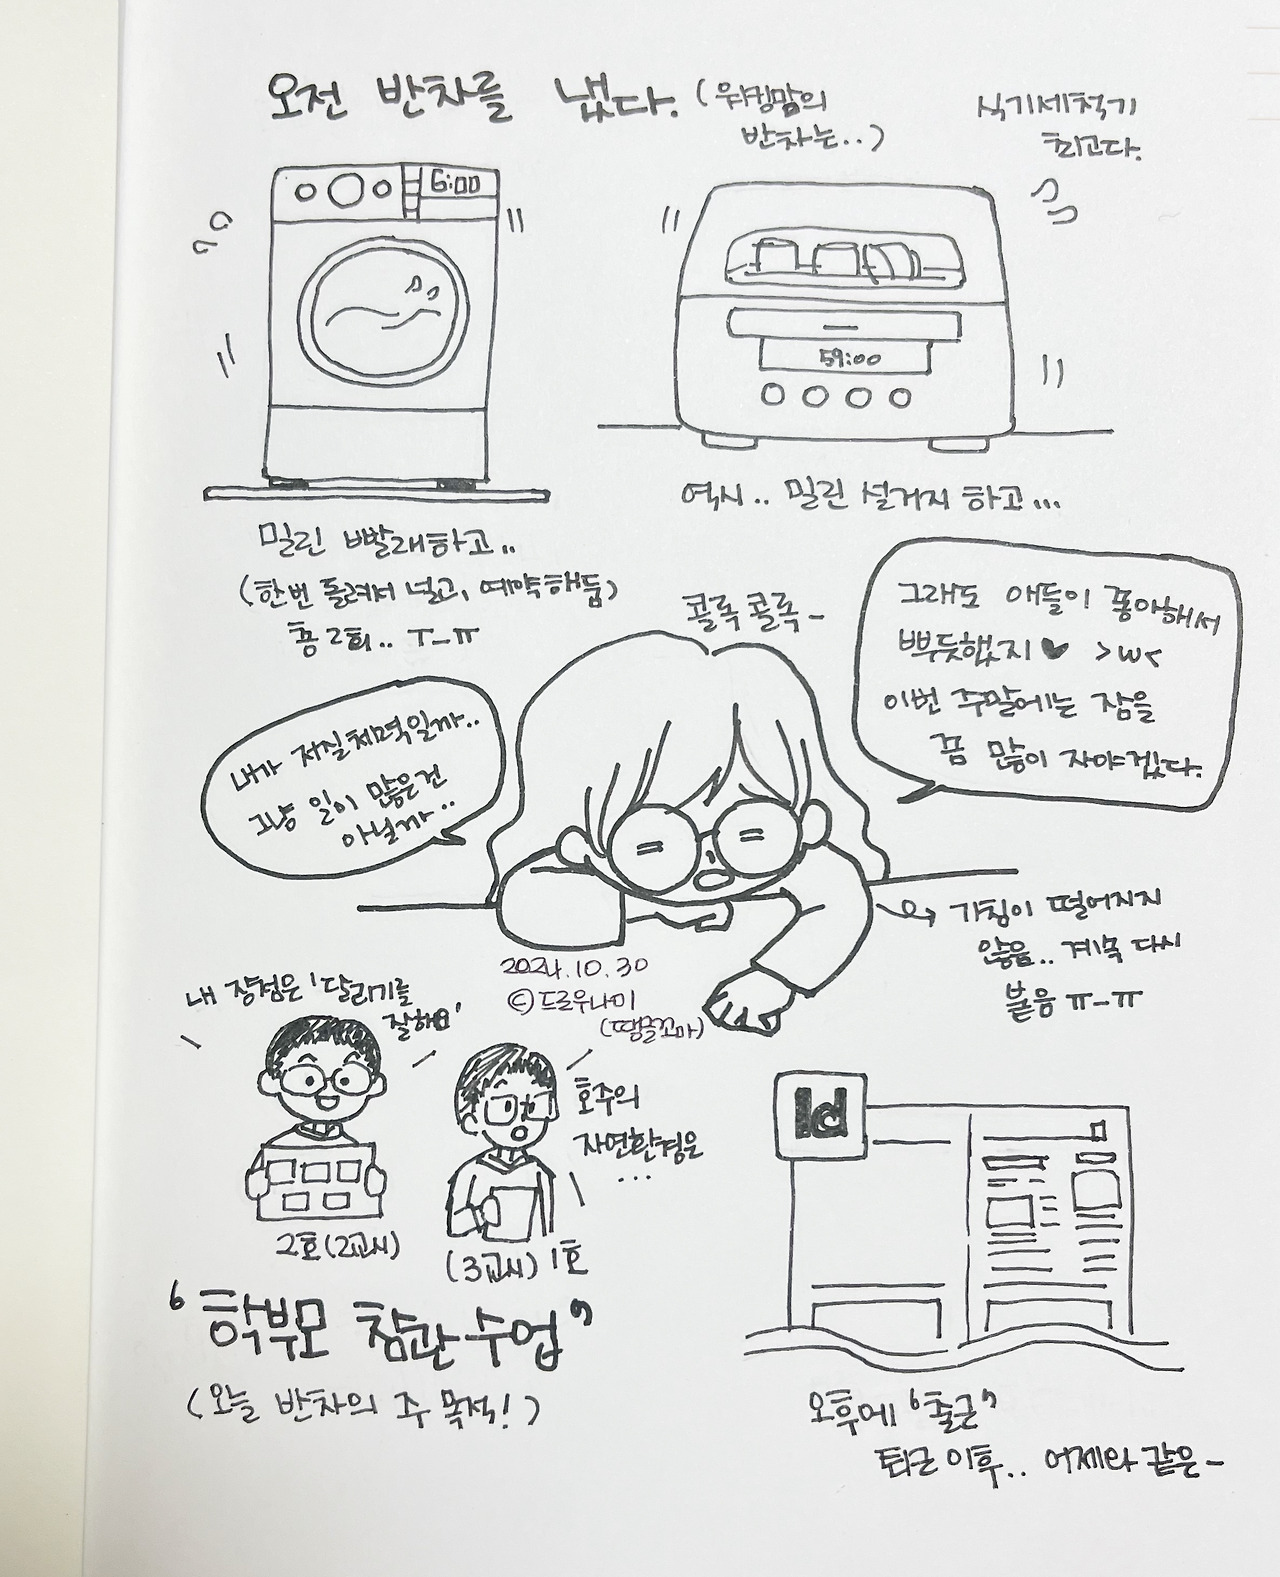 오전 반차를 냈다. (워킹맘의
반차는..)
식기세척기
최고다.
6:00
59:00
밀린 빨래하고..
(한번 돌려서 널고, 예약해둠)
총 2회.. ㅜ_ㅠ
역시.. 밀린 설거지 하고...
콜록 콜록~
내가 저질체력일까..
그냥 일이 많은건
아닐까..
그래도 애들이 좋아해서
뿌듯했지♥ >w<
이번 주말에는 잠을
좀 많이 자야겠다.
기침이 떨어지지
않음.. 계속 다시
붙음 ㅠ-ㅠ
2024.10.30
©드로우나미
(땡글꼬마)
내 장점은 '달리기를
잘해요'
2호(2교시)
호주의
자연환경은
...
(3교시) 1호
'학부모 참관수업'
(오늘 반차의 주 목적!)
Id
오후에 '출근'
퇴근 이후.. 어제와 같은~